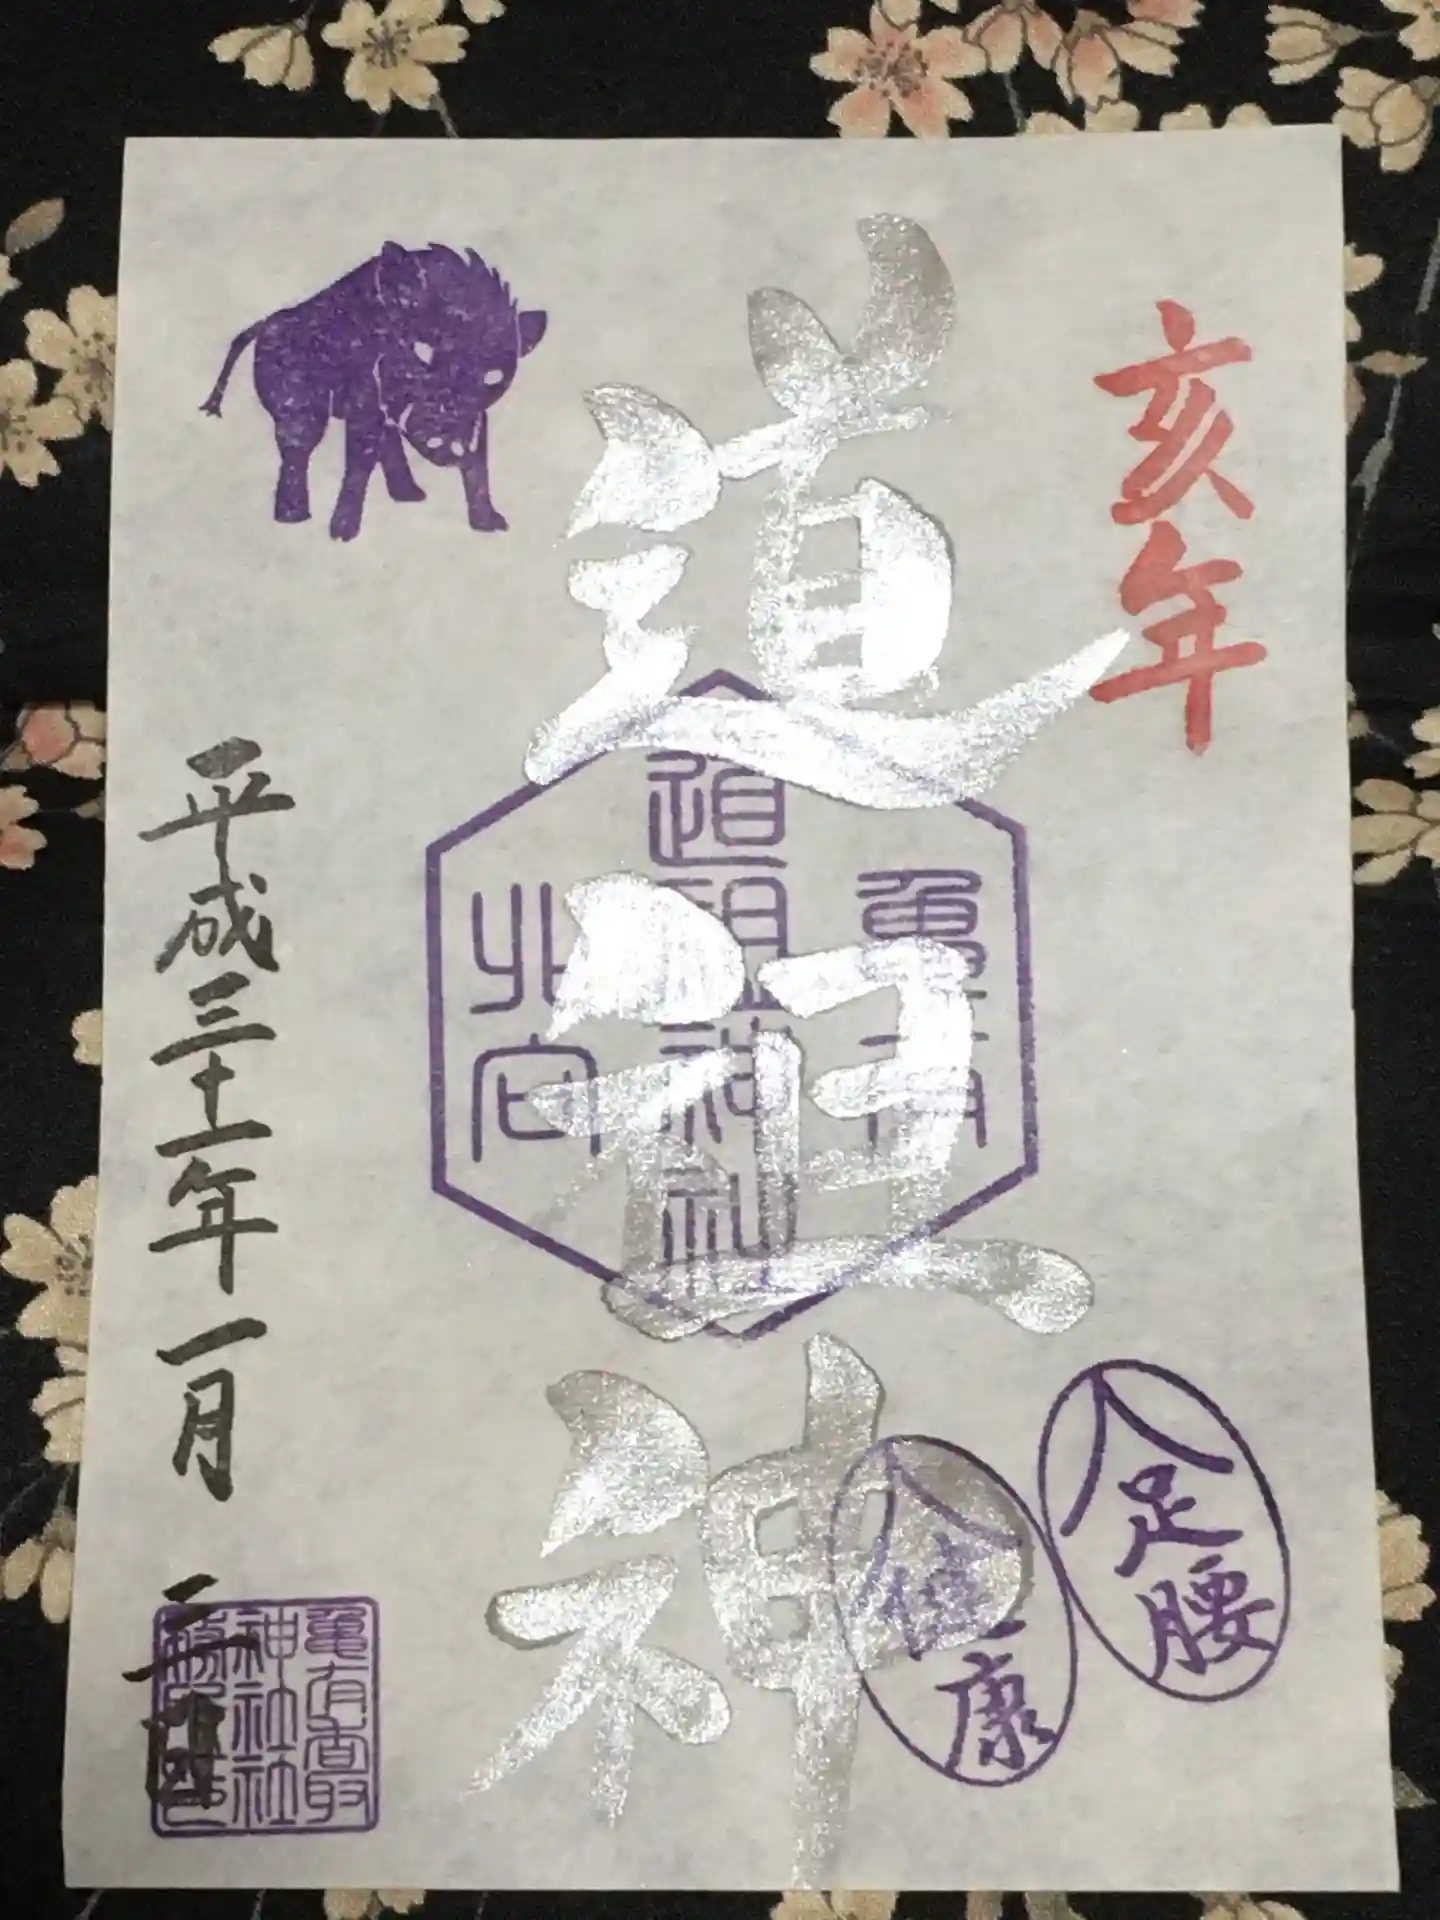 亥年
道祖神
亀有
道祖神社
北向
足腰
健康
平成三十一年一月
亀有香取
神社社